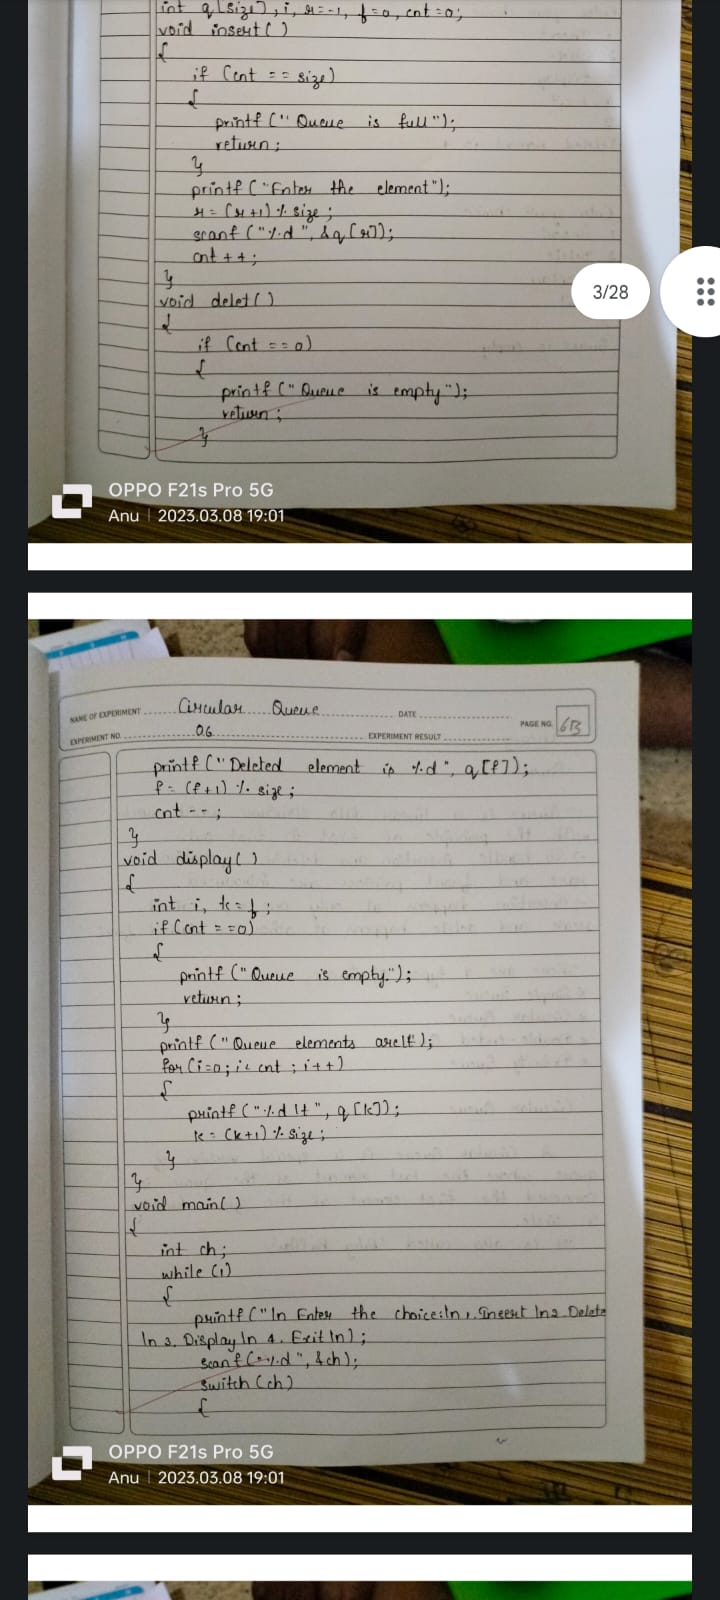 int q[size], i, r=-1, f=0, cnt=0;
void insert()
{
if (cnt == size)
{
printf("Queue is full");
return;
}
printf("Enter the element");
r=(r+1)%size;
scanf("%d", &q[r]);
cnt++;
}
void delet()
{
if (cnt == 0)
{
printf("Queue is empty");
return;
}
3/28
OPPO F21s Pro 5G
Anu | 2023.03.08 19:01
NAME OF EXPERIMENT Circular Queue DATE
EXPERIMENT NO. 06 EXPERIMENT RESULT PAGE NO. 6B
printf("Deleted element is %d", q[f]);
f=(f+1)%size;
cnt--;
}
void display()
{
int i, k=f;
if(cnt==0)
{
printf("Queue is empty.");
return;
}
printf("Queue elements are\t");
for(i=0;i<cnt;i++)
{
printf("%d\t", q[k]);
k=(k+1)%size;
}
}
void main()
{
int ch;
while(1)
{
printf("\n Enter the choice:\n 1. Insert \n2. Delete
\n 3. Display \n 4. Exit \n);
scanf("%d", &ch);
switch(ch)
{
OPPO F21s Pro 5G
Anu | 2023.03.08 19:01